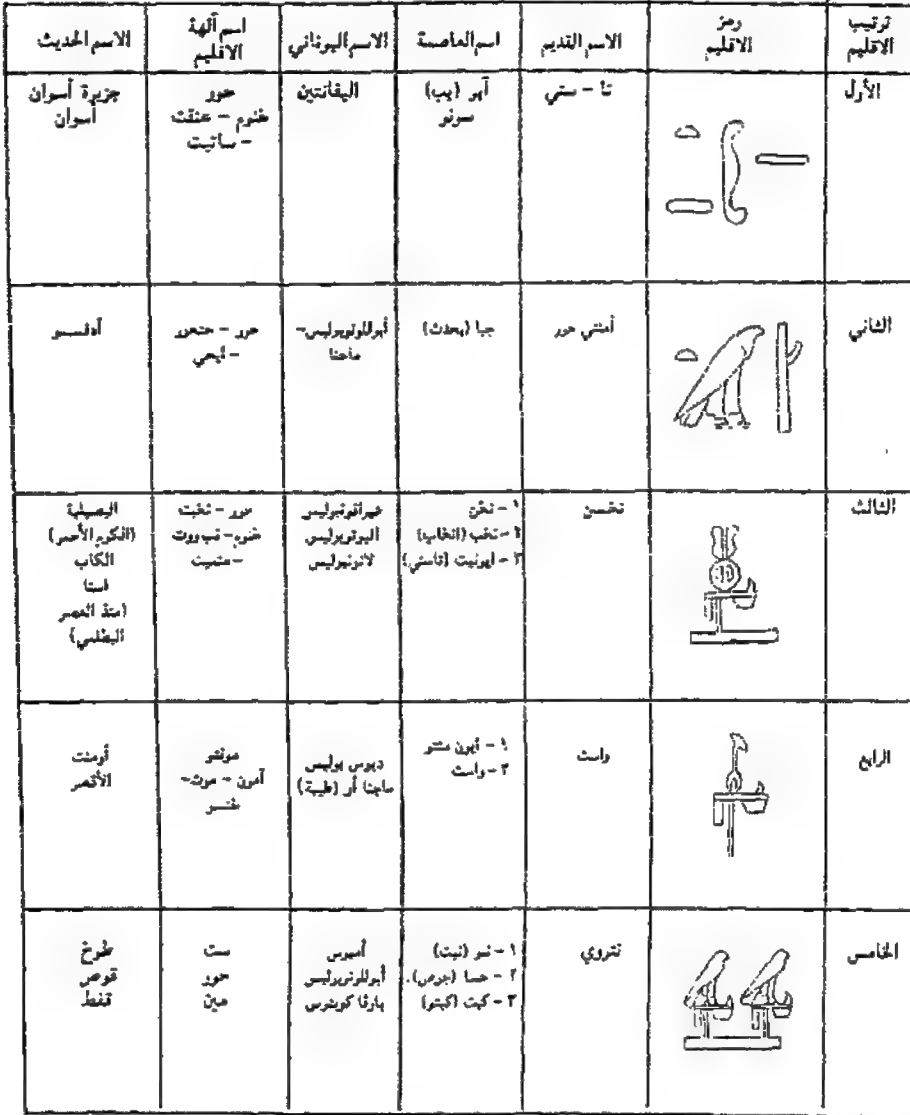 ترتيب الاقليم
رمز الاقليم
الاسم القديم
اسم العاصمة
الاسم اليوناني
اسم آلهة الاقليم
الاسم الحديث
الأول
تا - ستي
آبر (يب)
سونو
اليفانتين
حور
خنوم - عنقت
- ساتيت
جزيرة أسوان
أسوان
الثاني
أمنتي حور
جبا (بحدت)
أبوللونوبوليس-
ماجنا
حور - حتحور
- أيحي
أدفـــو
الثالث
نخسن
١ - نخن
٢ - نخب (انخاب)
٣ - ايونيت (تاسني)
هيراقونبوليس
اليوتوبوليس
لاتونبوليس
حور - نخبت
خنوم - نب ووت
- منحيت
البصيلية
(الكوم الأحمر)
الكاب
اسنا
(منذ العصر
البطلمي)
الرابع
واست
١ - أيون منتو
٢ - واست
ديوس بوليس
ماجنا أو (طيبة)
مونتو
آمون - موت-
خنســو
أرمنت
الأقصر
الخامس
نتروي
١ - نبو (نبت)
٢ - حسا (جوص).
٣ - كبت (كبتو)
أمبوس
أبوللونوبوليس
بارفا كوبتوس
ست
حور
مين
طوخ
قوص
قفط